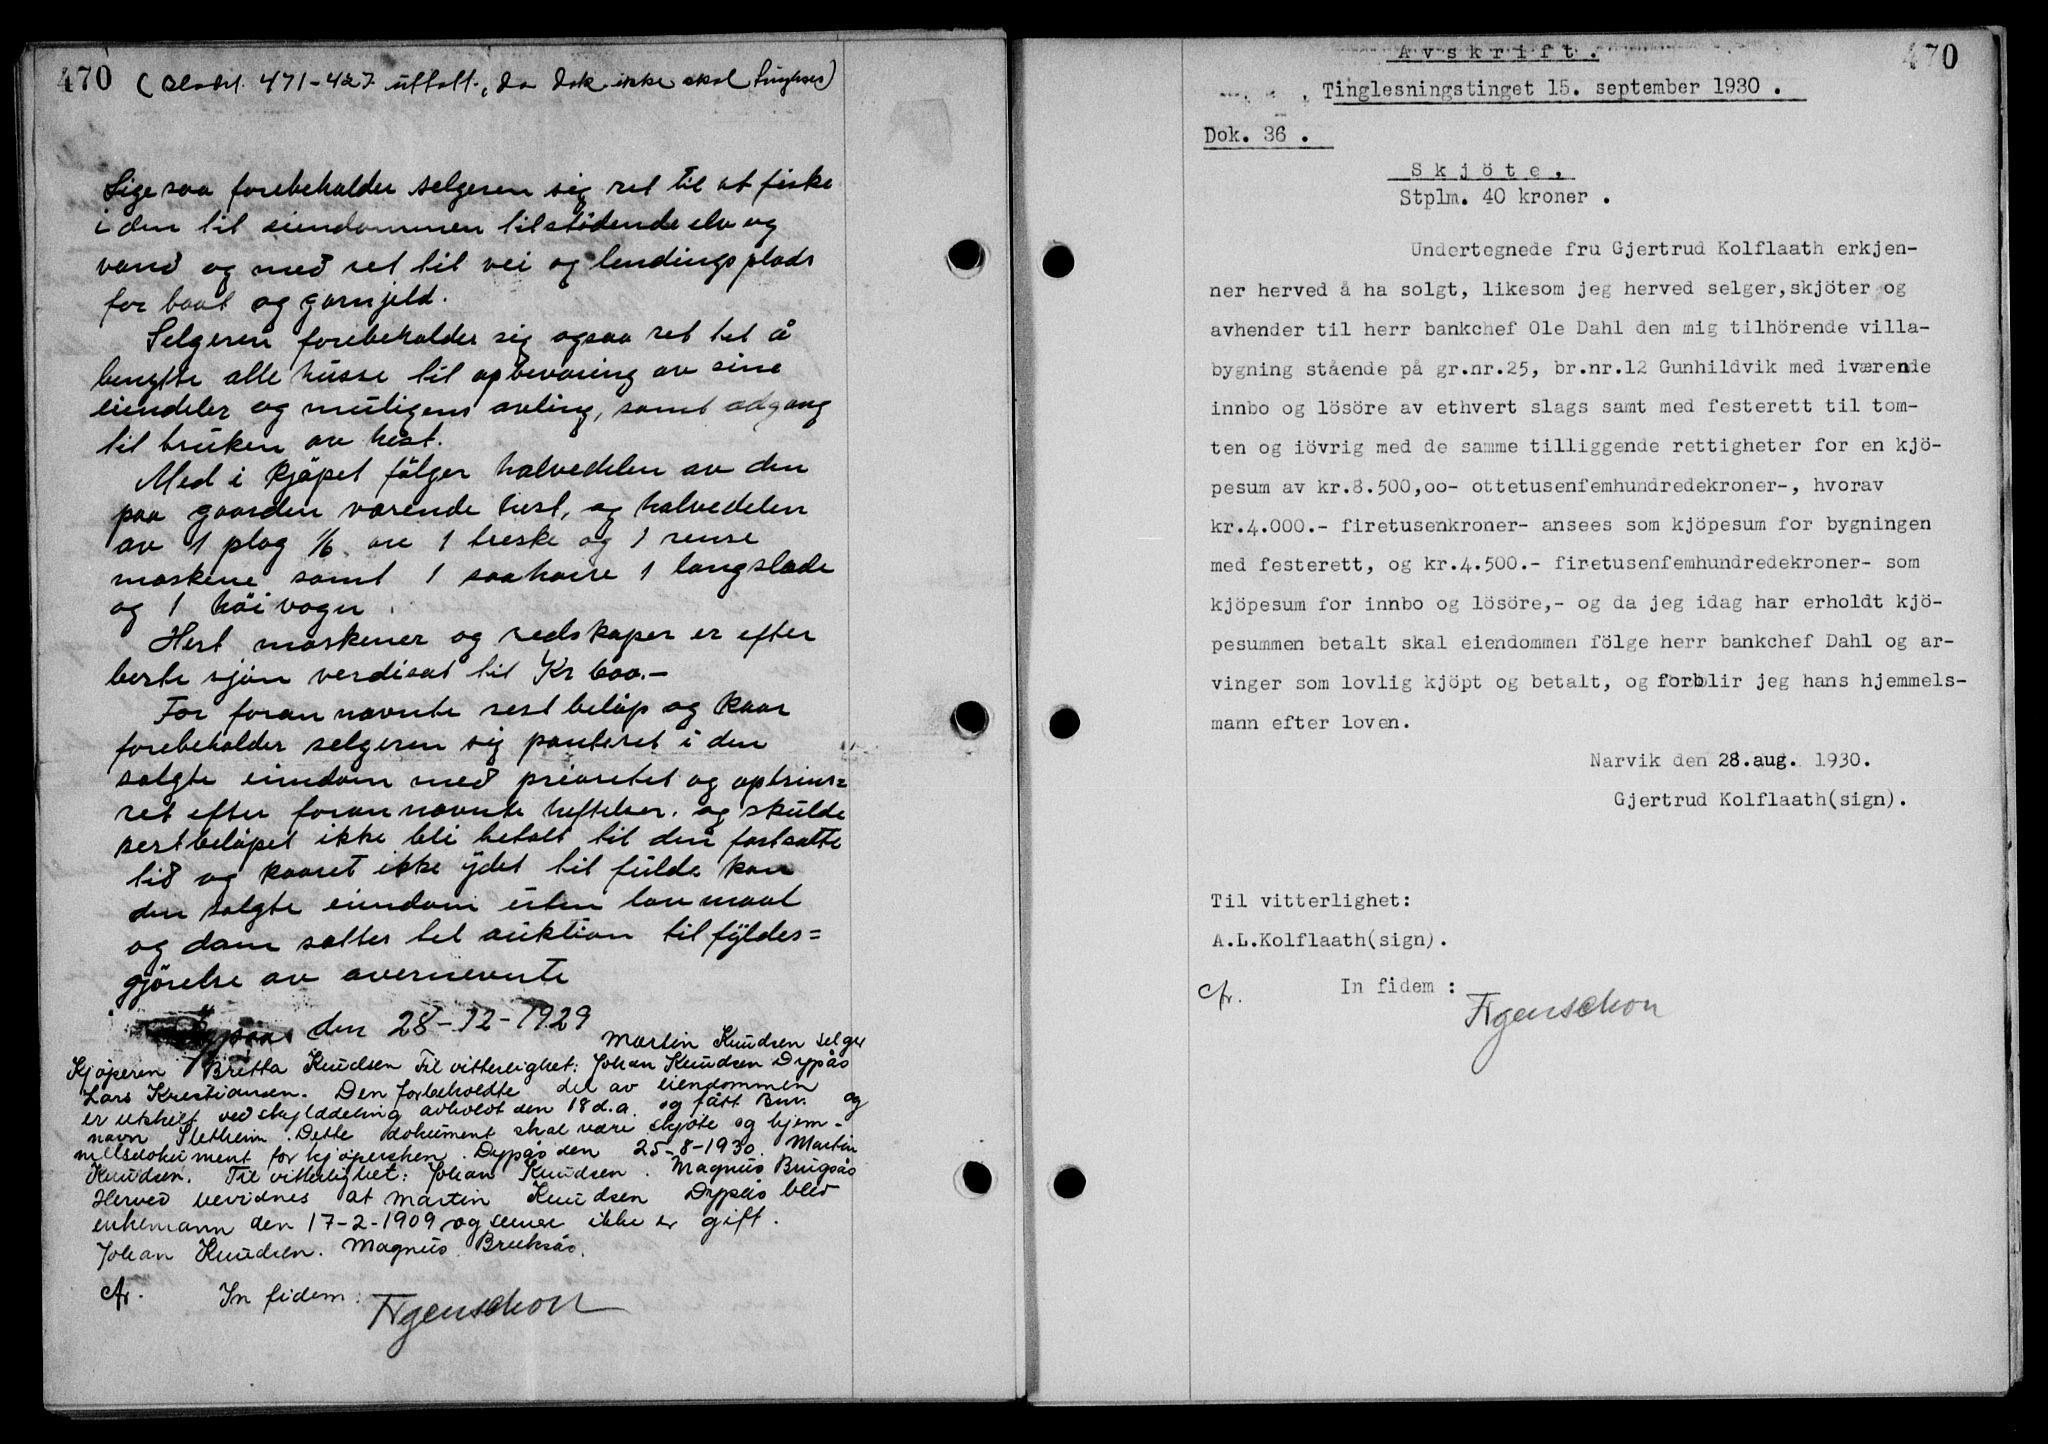 470 ( 471-427 uttatt, da dok ikke skal tinglyses)
Lige saa forebeholder selgeren sig ret til at fiske
i den til eiendommen tilstødende elv og
vand og med ret til vei og lendingsplads
for baat og garnjeld.
Selgeren forebeholder sig ogsaa ret til å
benytte alle husse til opbevaring av sine
eiendeler og muligens avling, samt adgang
til bruken av hest.
Med i kjøpet følger halvedelen av den
paa gaarden værende hest, og halvedelen
av 1 plog 1/6 av 1 treske og 1 rense
maskene samt 1 saaharve 1 langslæde
og 1 höi vogn.
Hest maskener og redskaper er efter
beste sjön verdisat til Kr 600.-
For foran nævnte restbeløp og kaar
forebeholder selgeren sig panteret i den
solgte eiendom med prioretet og optrins=
ret efter foran nævnte heftelser. og skulde
restbeløpet ikke bli betalt til den fastsatte
tid og kaaret ikke ydet til fulde kan
den solgte eiendom uten lov maal
og dom sættes til auktion til fyldes=
gjörelse av overnevnte
den 28-12-1929
Martin Knudsen selger
Kjøperen Britta Knudsen Til vitterlighet: Johan Knudsen Dypås
Lars Kristiansen. Den forbeholdte del av eiendommen
er utskilt ved skylddeling avholdt den 18 d.a. og fått Bnr. og
navn Sletheim. Dette dokument skal være skjøte og hjem-
melsdokument for kjøpersken. Dypås den 25-8-1930. Martin
Knudsen. Til vitterlighet: Johan Knudsen. Magnus Brugsås
Herved bevidnes at Martin Knudsen Dypås blev
enkemann den 17-2-1909 og senere ikke er gift.
Johan Knudsen. Magnus Bruksås.
Afr. In fidem: Figenschou
470
Avskrift.
Tinglesningstinget 15. september 1930 .
Dok. 36 .
Skjöte,
Stplm. 40 kroner .
Undertegnede fru Gjertrud Kolflaath erkjen-
ner herved å ha solgt, likesom jeg herved selger, skjöter og
avhender til herr bankchef Ole Dahl den mig tilhörende villa-
bygning stående på gr.nr.25, br.nr.12 Gunhildvik med iværende
innbo og lösöre av ethvert slags samt med festerett til tom-
ten og iövrig med de samme tilliggende rettigheter for en kjö-
pesum av kr.8.500,oo- ottetusenfemhundredekroner-, hvorav
kr.4.000.- firetusenkroner- ansees som kjöpesum for bygningen
med festerett, og kr.4.500.- firetusenfemhundredekroner- som
kjöpesum for innbo og lösöre,- og da jeg idag har erholdt kjö-
pesummen betalt skal eiendommen fölge herr bankchef Dahl og ar-
vinger som lovlig kjöpt og betalt, og forblir jeg hans hjemmels-
mann efter loven.
Narvik den 28.aug. 1930.
Gjertrud Kolflaath(sign).
Til vitterlighet:
A.L.Kolflaath(sign).
Afr. In fidem :
Figenschou